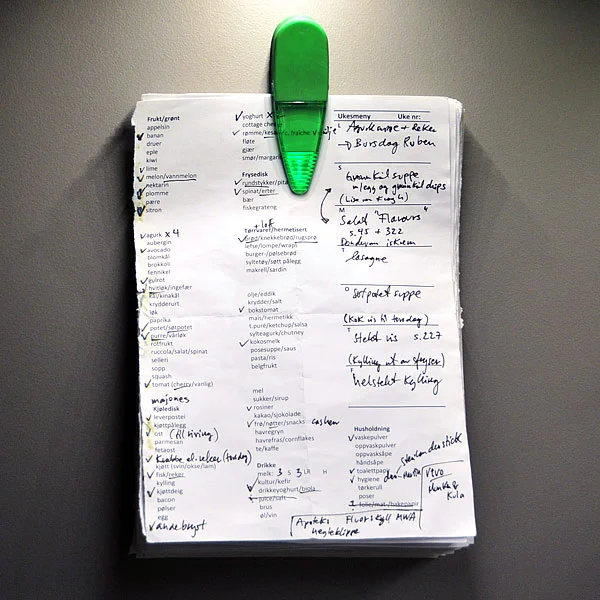 Frukt/grønt
appelsin
✓ banan
druer
eple
kiwi
✓ lime
✓ melon/vannmelon
nektarin
plomme
✓ pære
✓ sitron
✓ agurk x 4
aubergin
✓ avocado
blomkål
brokkoli
fennikel
✓ gulrot
hvitløk/ingefær
kål/kinakål
krydderurt
løk
paprika
✓ potet/søtpotet
✓ purre/vårløk
rotfrukt
ruccola/salat/spinat
selleri
sopp
squash
✓ tomat (cherry/vanlig)
majones
Kjøledisk
✓ leverpostei
✓ kjøttpålegg
✓ ost (til riving)
parmesan
fetaost
✓ Krabbe el. reker (torsdag)
kjøtt (svin/okse/lam)
✓ fisk/reker
kylling
✓ kjøttdeig
bacon
pølser
egg
✓ andebryst
✓ yoghurt x
cottage cheese
✓ rømme/kesam/c. fraiche
fløte
gjær
smør/margarin
Frysedisk
✓ rundstykker/pita
✓ spinat/erter
bær
fiskegrateng
+ loff
Tørrvarer/hermetisert
✓ brød/knekkebrød/rugsprø
lefse/lompe/wraps
burger-/pølsebrød
syltetøy/søtt pålegg
makrell/sardin
olje/eddik
krydder/salt
✓ bokstomat
mais/hermetikk
t.puré/ketchup/salsa
sylteagurk/chutney
✓ kokosmelk
posesuppe/saus
pasta/ris
belgfrukt
mel
sukker/sirup
✓ rosiner
kakao/sjokolade
✓ frø/nøtter/snacks cashew
havregryn
havrefras/cornflakes
te/kaffe
Drikke
melk: 3 S 3 LR H
✓ kultur/kefir
✓ drikkeyoghurt/biola
juice/saft
brus
øl/vin
Ukesmeny Uke nr:
L
+ Reker
→ Bursdag Ruben
S
Grønnkålsuppe
m/egg og grønnkålchips
M
Salat "Flavours"
s. 45 + 322
T
lasagne
O Søtpotet suppe
(Kok ris til torsdag)
T
Stekt ris s. 227
(Kylling ut av fryser)
F
helstekt kylling
Husholdning
✓ vaskepulver
oppvaskpulver
oppvasksåpe
håndsåpe
✓ toalettpapir
✓ hygiene
tørkerull
poser
1 folie/mat-/bakepapir
Apotek: Fluorskyll MWA
negleklippe